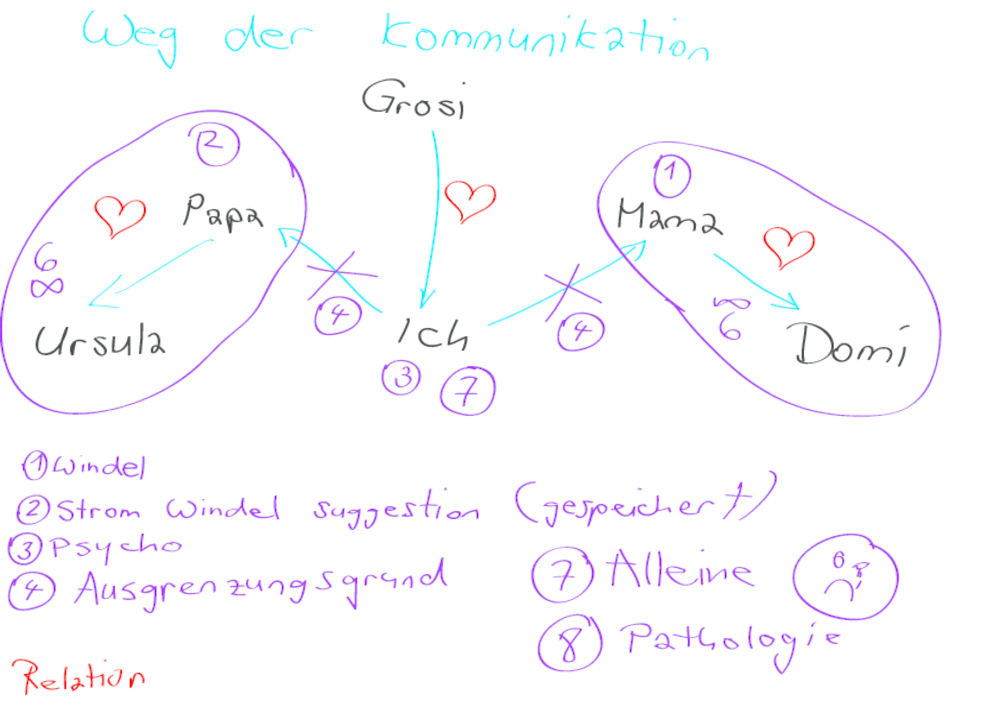 Weg der Kommunikation
Grosi
2
1
Papa
Mama
6
∞
∞
6
4
4
Ursula
Ich
Domi
3 7
1 Windel
2 Strom Windel suggestion (gespeichert)
3 Psycho
4 Ausgrenzungsgrund
7 Alleine
8 Pathologie
Relation